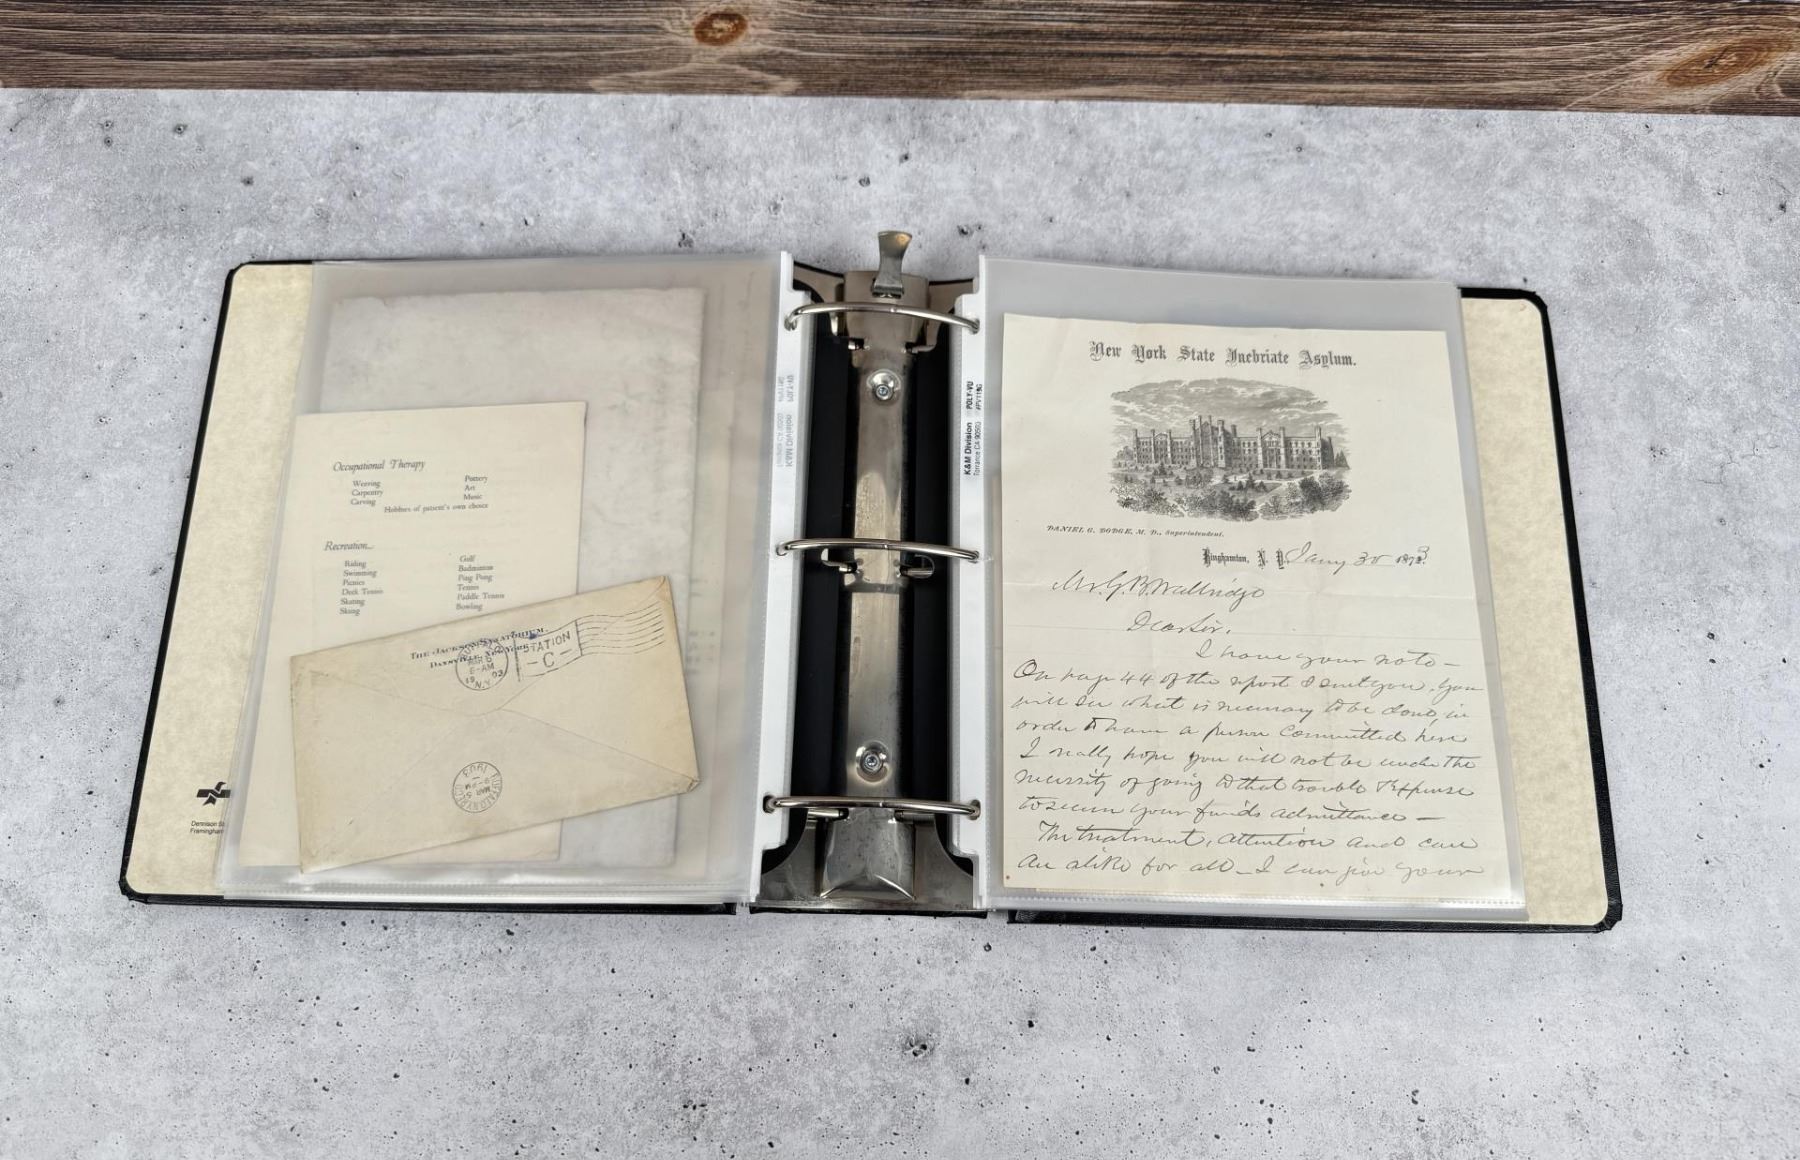 Occupational Therapy
Weaving Pottery
Carpentry Art
Carving Music
Hobbies of patient's own choice
Recreation...
Riding Golf
Swimming Badminton
Picnics Ping Pong
Deck Tennis Tennis
Skating Paddle Tennis
Skiing Bowling
THE JACKSON SANATORIUM,
DANSVILLE, NEW YORK.
MAR 6
6-AM
19 03
N.Y.
STATION
-C-
MAR 5
9-PM
1903
Dennison
Framingham
K&M Division POLY-VU
Torrance CA 90503
New York State Inebriate Asylum.
DANIEL G. DODGE, M. D., Superintendent.
Binghamton, N. Y. Jany 30 1873
Mr. G. B. Walbridge
Dear Sir,
I have your note —
On page 44 of the report I sent you, you
will see what is necessary to be done, in
order to have a person committed here
I really hope you will not be under the
necessity of going to that trouble & expense
to secure your friends admittance —
The treatment, attention and care
are alike for all — I can give your